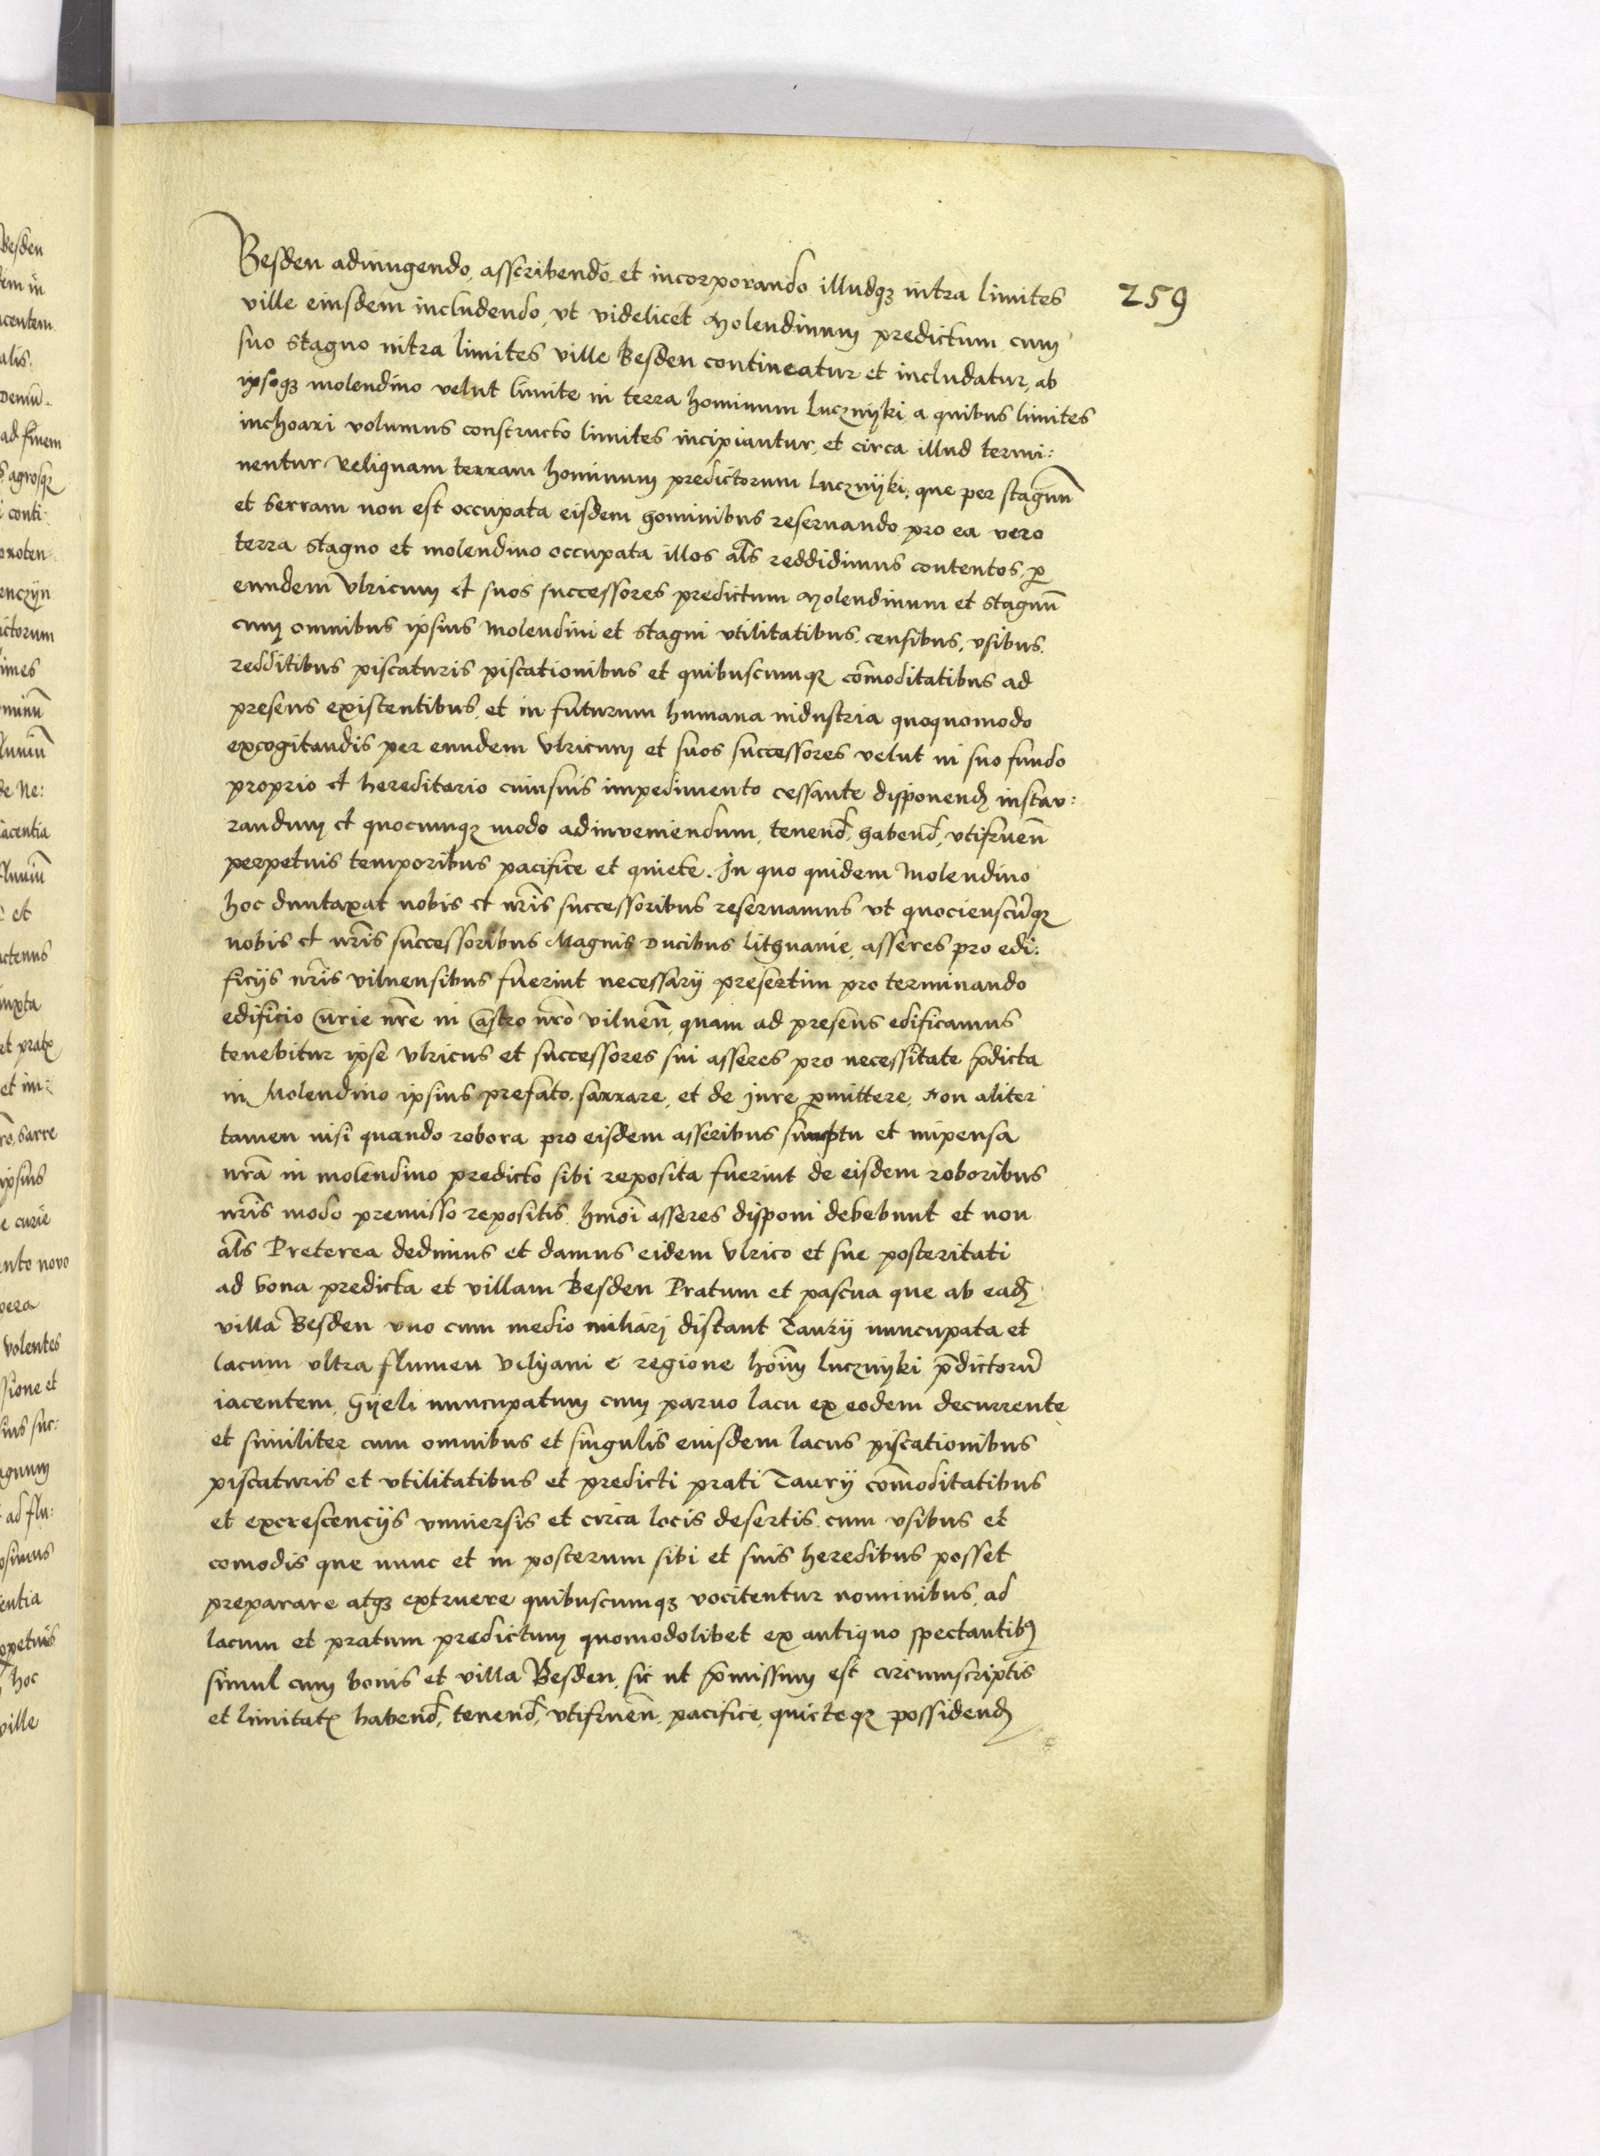 259
Besden adiungendo, asscribendo et incorporando illudqꝫ intra limites
ville eiusdem includendo, vt videlicet Molendinum predictum cum
suo stagno intra limites ville Besden contineatur et includatur, ab
ipsoqꝫ molendino velut limite in terra hominum Lucznijki a quibus limites
inchoari volumus constructo limites incipiantur, et circa illud termi:
nentur Reliquam terram hominum predictorum Lucznijki, que per stagnū
et serram non est occupata eisdem hominibus reseruando pro ea vero
terra stagno et molendino occupata illos al̄s reddidimus contentos, ꝑ
eundem Vlricum et suos successores predictum Molendinum et stagnū
cum omnibus ipsius Molendini et stagni vtilitatibus, censibus, vsibus,
redditibus piscaturis piscationibus et quibuscumqꝫ cōmoditatibus ad
presens existentibus, et in futurum humana industria quoquomodo
excogitandis per eundem Vlricum et suos successores velut in suo fundo
proprio et hereditario cuiusuis impedimento cessante disponend instau:
randum et quocumqꝫ modo adinveniendum, tenend, habend, vtifruen̄
perpetuis temporibus pacifice et quiete. In quo quidem Molendino
hoc duntaxat nobis et nr̄is successoribus reseruamus vt quocienscūqꝫ
nobis et nr̄is successoribus Magnis Ducibus Lithuanie, asseres pro edi:
ficijs nr̄is vilnensibus fuerint necessarij presertim pro terminando
edificio Curie nr̄e in Castro nr̄o vilnen̄, quam ad presens edificamus
tenebitur ipse Vlricus et successores sui asseres pro necessitate p̄dicta
in Molendino ipsius prefato, sarrare, et de jure ꝑmittere, Non aliter
tamen nisi quando robora pro eisdem asseribus sumptu et impensa
nr̄a in molendino predicto sibi reposita fuerint de eisdem roboribus
nr̄is modo premisso repositis, hmōi asseres disponi debebunt et non
al̄s Preterea dedimus et damus eidem Vlrico et sue posteritati
ad bona predicta et villam Besden Pratum et pascua que ab ead
villa Besden vno cum medio miliarj distant Taurij nuncupata et
lacum vltra flumen Vilyani e regione hoīm Lucznijki p̄dictorū
iacentem, Gijeli nuncupatum cum paruo lacu ex eodem decurrente
et similiter cum omnibus et singulis eiusdem lacus piscationibus
piscaturis et vtilitatibus et predicti prati Taurij cōmoditatibus
et excrescencijs vniuersis et circa locis desertis cum vsibus et
comodis que nunc et in posterum sibi et suis heredibus posset
preparare atqꝫ extruere quibuscumqꝫ vocitentur nominibus, ad
lacum et pratum predictum quomodolibet ex antiquo spectantibꝫ
simul cum bonis et villa Besden, sic ut p̄missum est circumscriptis
et limitat habend, tenend, vtifruen̄, pacifice, quieteqꝫ possidend